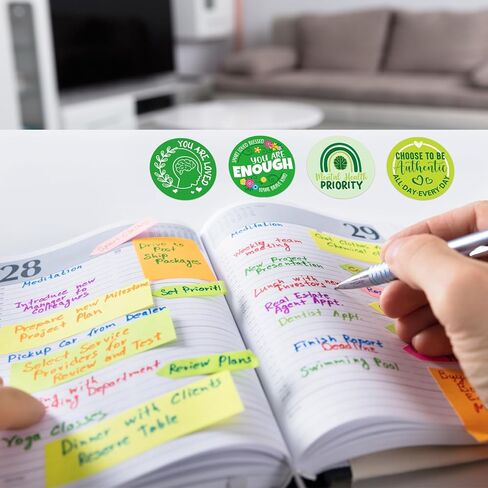 YOU ARE LOVED
YOU ARE
ENOUGH
Mental Health
PRIORITY
CHOOSE TO BE
Authentic
ALL DAY EVERY DAY
28
Meditation
Introduce new
Manager to
Colleagues
Prepare new Milestone
Project Plan
Pickup Car from Dealer
Select Service
Providers for
Review and Test
with
Department
Yoga Classes
Dinner with Clients
Reserve Table
Drive to
Post
Ship
Packages
Set Priority!
Review Plans
29
Meditation
Weekly team
meeting
New Project
Presentation
Lunch with
Investors
Real Estate
Agent Appt.
Dentist Appt.
Finish Report
Deadline
Swimming Pool